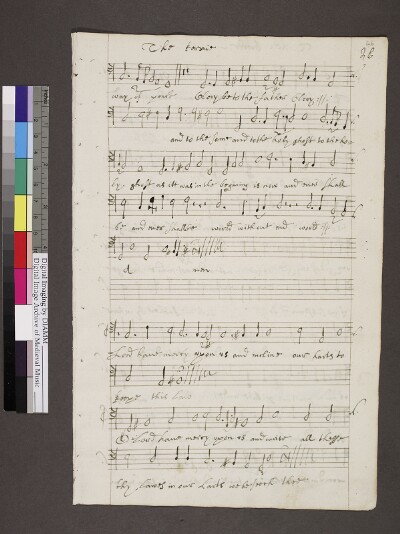 The tennor
26
way of peace Glory be to the father Glory
and to the sonne and to the holy ghost to the ho
ly ghost as it was in the begining is now and ever shall
be and ever shalbe world without end world
A men
Lord have mercy upon us and incline our harts to
keepe this law
Lord have mercy upon us and write all these
thy lawes in our harts we beseech thee
Digital Imaging by DIAMM
Digital Image Archive of Medieval Music